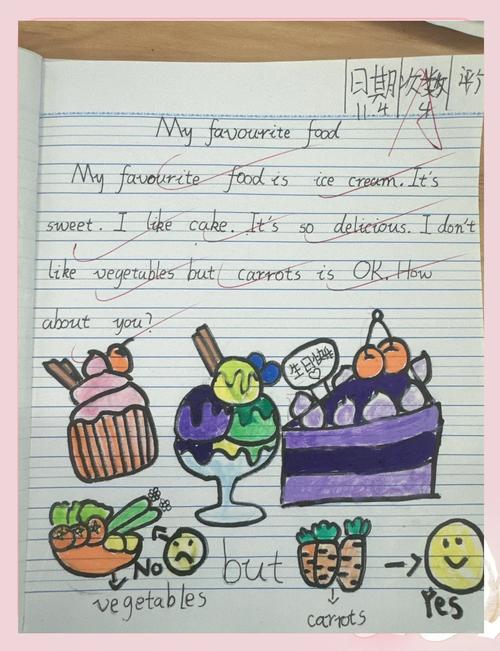 日期 次数 评
11.4 4
My favourite food
My favourite food is ice cream. It's
sweet. I like cake. It's so delicious. I don't
like vegetables but carrots is OK. How
about you?
生日快乐
No but Yes
vegetables carrots